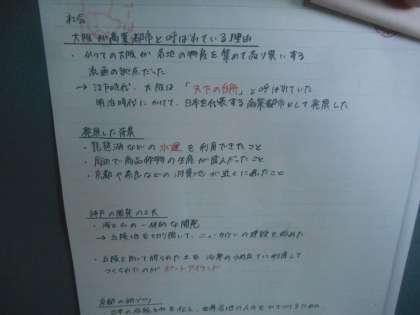 社会
大阪が商業都市と呼ばれている理由
・かつての大阪が各地の物産を集めて売り買いする
商業の拠点だった
→ 江戸時代、大阪は「天下の台所」と呼ばれていた
明治時代にかけて、日本を代表する商業都市として発展した
発展した背景
・琵琶湖などの水運を利用できたこと
・周辺で商品作物の生産が盛んだったこと
・京都や奈良などの消費地が近くに在ったこと
神戸の開発の工夫
・海と山の一体的な開発
→ 丘陵地を切り崩して、ニュータウンの建設を始めた
・丘陵を削って得られた土を沿岸の埋め立てに利用して
つくられたのがポートアイランド
京都の街づくり